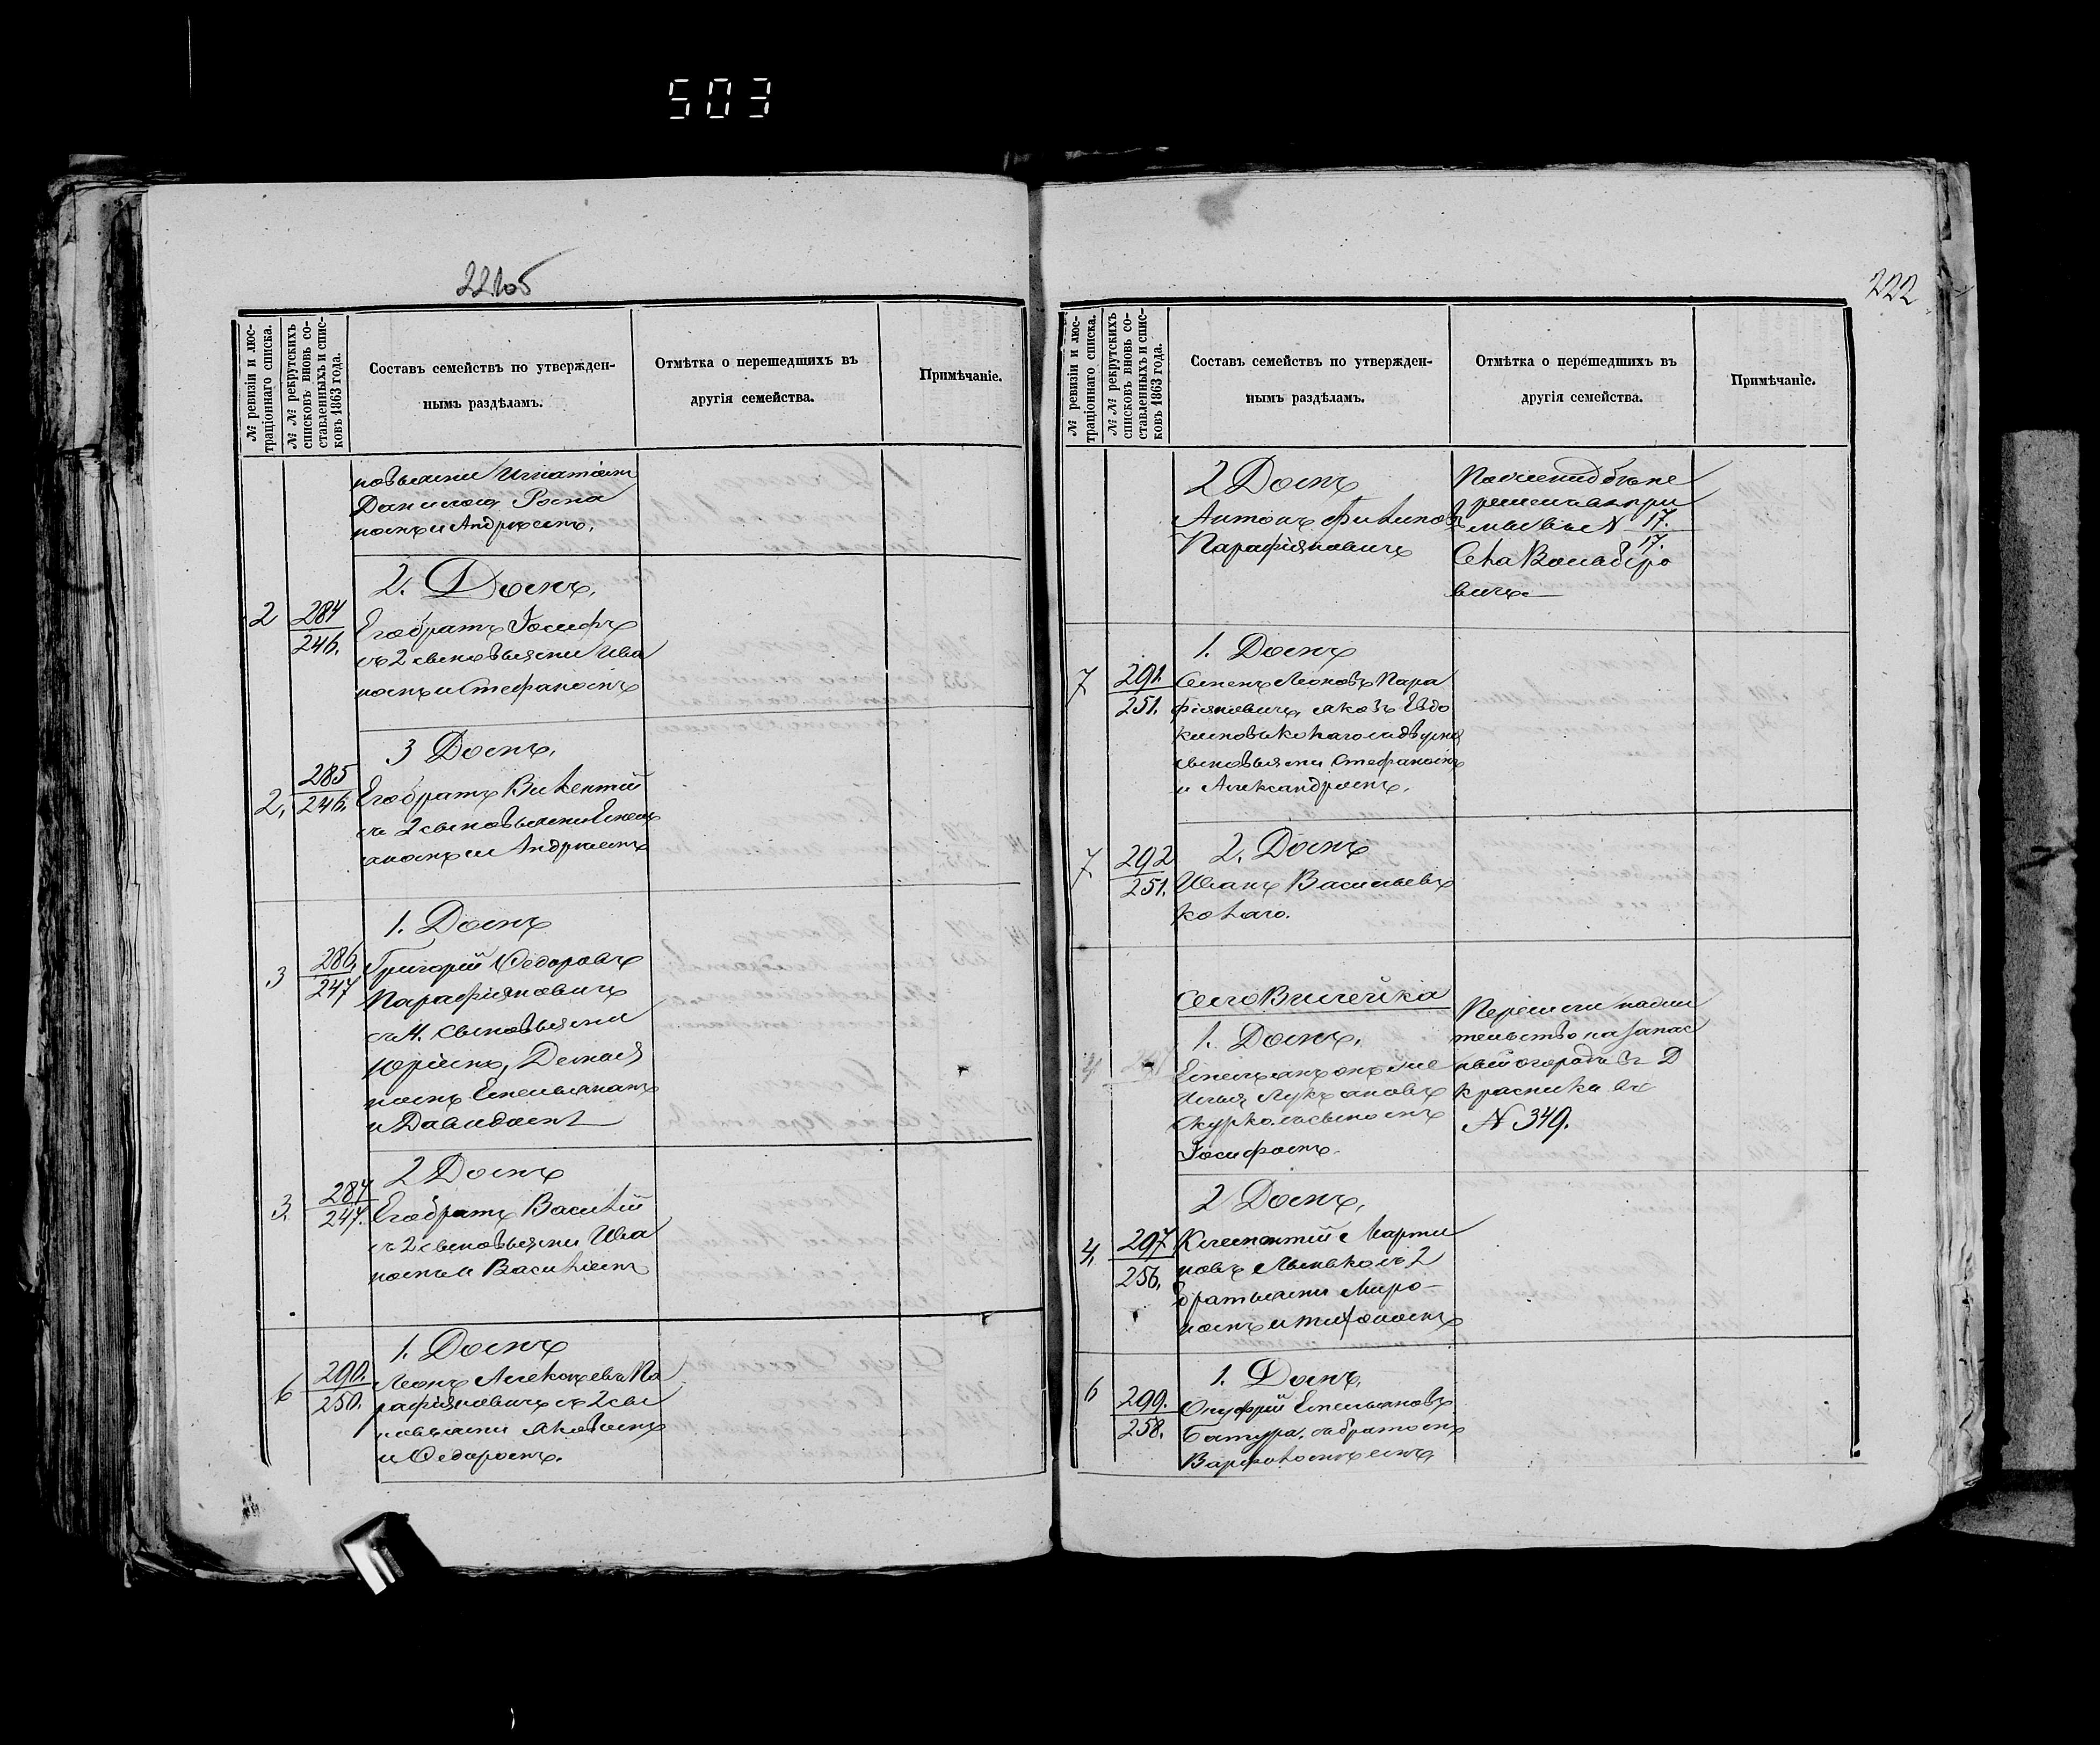 503
221об
№ ревизіи и люс-
траціоннаго списка.
№ № рекрутскихъ
списковъ вновь со-
ставленныхъ и спис-
ковъ 1863 года.
Составъ семействъ по утвержден-
нымъ раздѣламъ.
Отмѣтка о перешедшихъ въ
другія семейства.
Примѣчаніе.
новьями Игнатіемъ
Данилою Рома
номъ и Андреемъ.
2. Домъ.
2 284
246.
Его братъ Іосифъ
съ 2 сыновьями Ива
номъ и Стефаномъ
3 Домъ.
2. 285
246.
Его братъ Викентій
съ 2 сыновьями
и Андреемъ
1. Домъ
3 286.
247
Григорій Ѳедоровъ
Парафіяновичъ
съ 4. сыновьями
Юріемъ, Демья
номъ Емельяномъ
и Давидомъ
2 Домъ
3. 287
247.
Его братъ Василій
съ 2 сыновьями Ива
номъ и Василіемъ
1. Домъ
6 290.
250.
Леонъ Алексѣевъ Па
рафіяновичъ съ 2 сы
новьями Яковомъ
и Ѳедоромъ.
222
№ ревизіи и люс-
траціоннаго списка.
№ № рекрутскихъ
списковъ вновь со-
ставленныхъ и спис-
ковъ 1863 года.
Составъ семействъ по утвержден-
нымъ раздѣламъ.
Отмѣтка о перешедшихъ въ
другія семейства.
Примѣчаніе.
2 Домъ
Антонъ Филиповъ
Парафіяновичъ
№ 17.
17.
1. Домъ
7 291.
251.
Семенъ Леоновъ Пара
фіяновичъ, Яковъ Евдо
кимовъ
сыновьями Стефаномъ
и Александромъ.
2. Домъ
7. 292
251.
Иванъ Васильевъ
Село Вилейка
1. Домъ.
Илья Лукьяновъ
сыномъ
Іосифомъ.
Перешли на жи
тельство на запас
ный огородъ въ Д
№ 349.
2 Домъ.
4. 297
256.
Климентій Марти
новъ съ 2
братьями Миро-
номъ и
1. Домъ.
6 299.
258.
Онуфрій Емельяновъ
Батура, съ братомъ